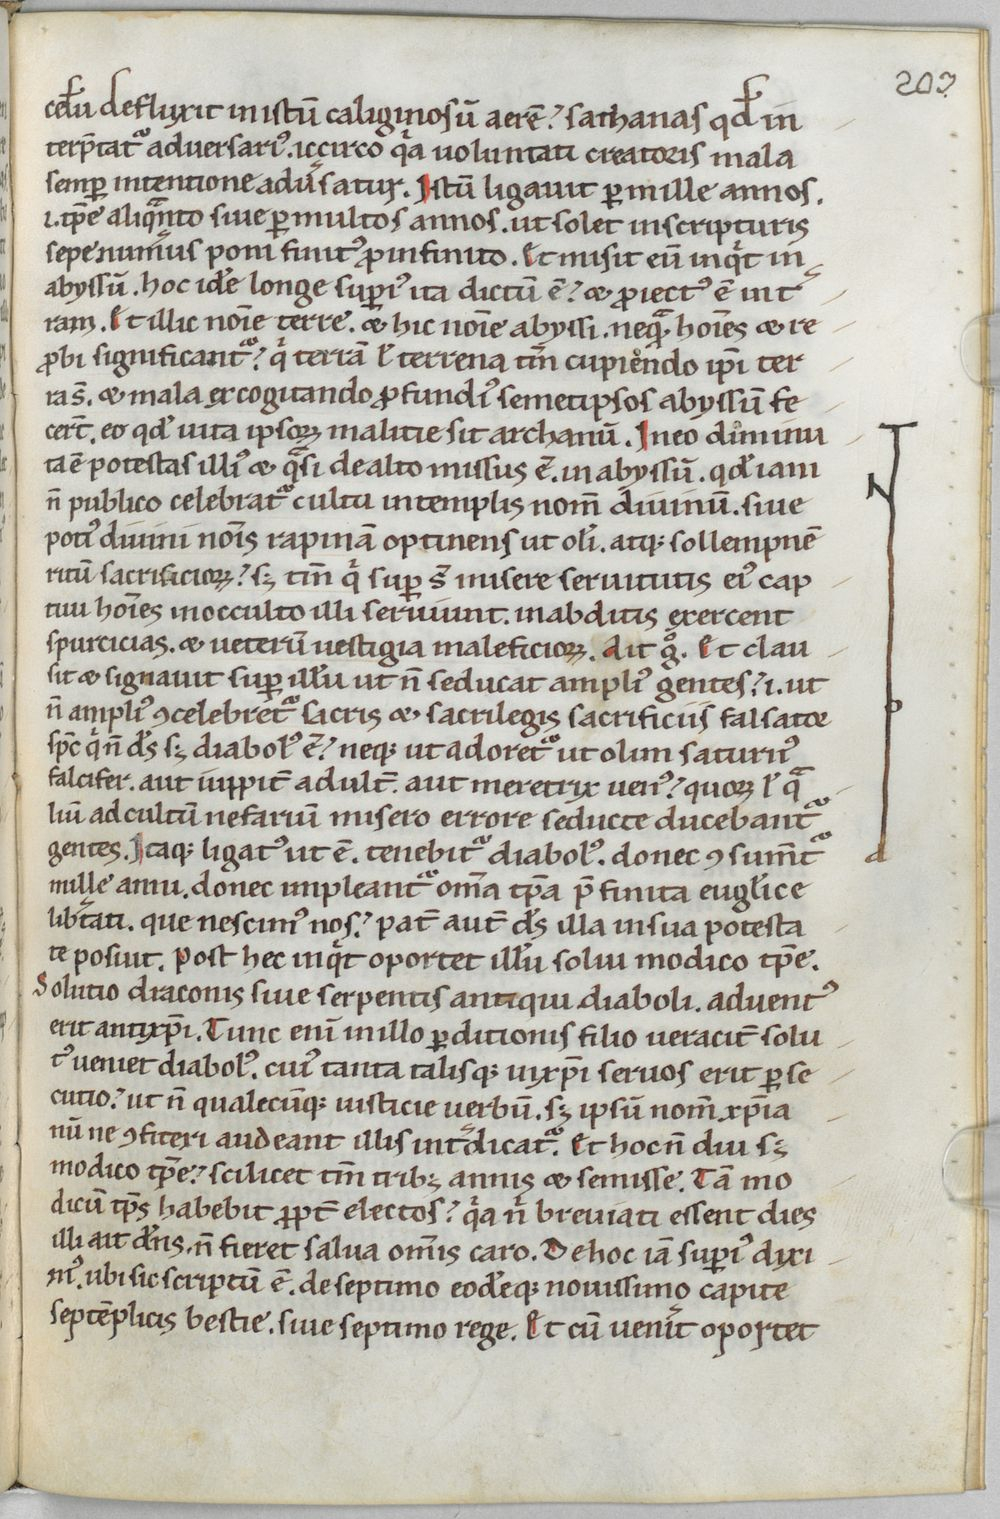 203
cęlū defluxit in istū caliginosū aerē? sathanas qđ in
terp̄tat᷑ aduersari᷒. iccirco qͥa uoluntati creatoris mala
semꝑ intentione adūsatur. Istū ligauit ꝑ mille annos.
.i. tp̄e aliqͣnto siue ꝑ multos annos. ut solet in scripturis
sepe numerus poni finit᷒ ꝓ infinito. Et misit eū inqͥt in
abyssū. hoc idē longe superi᷒ ita dictū ē? & ꝓiect᷒ ē in t̄
ram. Et illic noīe terre. & hic noīe abyssi. nequā hoīes & re
ꝓbi significant᷑? qͥ terrā ł terrena tm̄ cupiendo ip̄i ter
ra s̄. & mala excogitando ꝓfundi᷒ semetipsos abyssū fe
cer̄t. eo qđ uita ipsoꝝ malitie sit archanū. In eo diminu
ta ē potestas illi᷒ & qͣsi de alto missus ē in abyssū. qđ iam
n̄ publico celebrat᷑ cultu in templis nom̄ diuinū. siue
poti᷒ diuini noīs rapinā optinens ut oli. atqꝫ sollempnē
ritū sacrificioꝝ? sꝫ tm̄ qͥ suꝑ s̄ misere seruitutis ei᷒ cap
tiui hoīes in occulto illi seruiunt. in abditis exercent
spurcicias. & ueterū uestigia maleficioꝝ. Ait gͦ. Et clau
sit & signauit suꝑ illū ut n̄ seducat ampli᷒ gentes? .i. ut
n̄ ampli᷒ ꝯcelebret᷑ sacris & sacrilegis sacrificiis falsatoe
sp̄c qͥ n̄ ds̄ sꝫ diabol᷒ ē? neqꝫ ut adoret᷑ ut olim saturn᷒
falcifer. aut iuppit̄ adult̄. aut meretrix uen᷒? quoꝝ ł qͣ
liū ad cultū nefariū misero errore seducte ducebant᷑
gentes. Itaqꝫ ligat᷒ ut ē. tenebit᷑ diabol᷒. donec ꝯsum̄t᷑
mille anni. donec impleant᷑ om̄a tp̄a p̄finita euglice
libt̄ati. que nescim᷒ nos? pat̄ aut̄ ds̄ illa in sua potesta
te posuit. Post hec inqͥt oportet illū solui modico tp̄e.
Solutio draconis siue serpentis antiqui diaboli. aduent᷒
erit antixp̄i. Tunc enī in illo ꝑditionis filio ueracit̄ solu
t᷒ ueniet diabol᷒. cui᷒ tanta talisqꝫ in xp̄i seruos erit ꝑse
cutio? ut n̄ qualecūqꝫ iusticie uerbū. sꝫ ipsū nom̄ xp̄ia
nū ne ꝯfiteri audeant illis int̄dicat᷑. Et hoc n̄ diu sꝫ
modico tp̄e? scilicet tm̄ tribꝫ annis & semisse. Tā mo
dicū tp̄s habebit ꝓpt̄ electos? qͥa n̄ breuiati essent dies
illi ait dn̄s. n̄ fieret salua om̄is caro. De hoc iā superi᷒ dixi
m᷒. ubi sic scriptū ē. de septimo eodēqꝫ nouissimo capite
septēplicis bestie. siue septimo rege. Et cū uenerit oportet